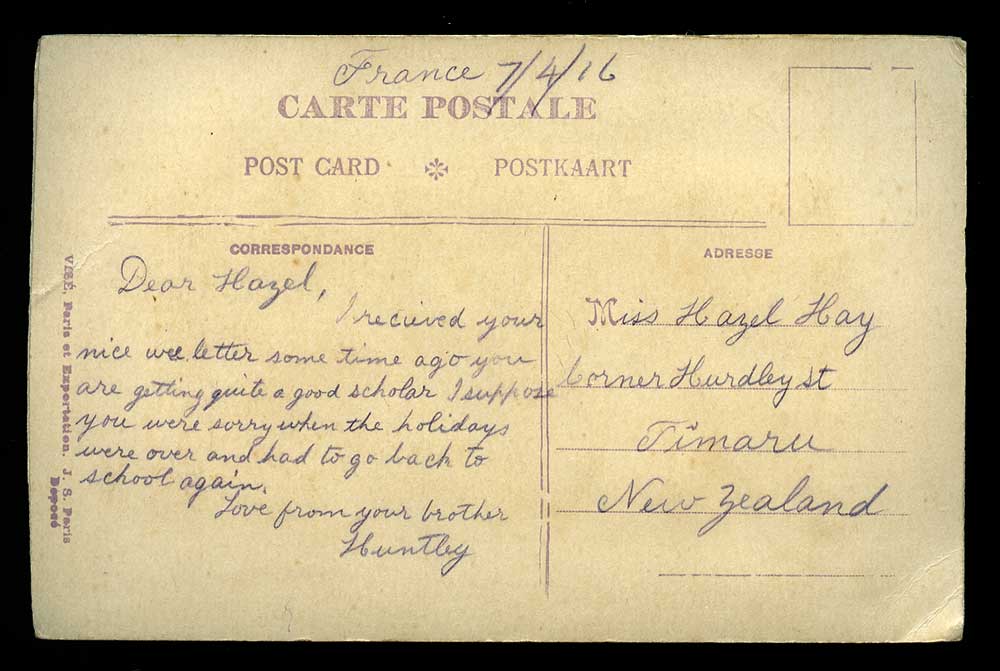 France 7/4/16
CARTE POSTALE
POST CARD * POSTKAART
CORRESPONDANCE
Dear Hazel,
I recieved your
nice wee letter some time ago you
are getting quite a good scholar I suppose
you were sorry when the holidays
were over and had to go back to
school again.
Love from your brother
Huntley
ADRESSE
Miss Hazel Hay
Corner Hurdley st
Timaru
New Zealand
VISÉ, Paris et Exportation. J. S. Paris
Déposé